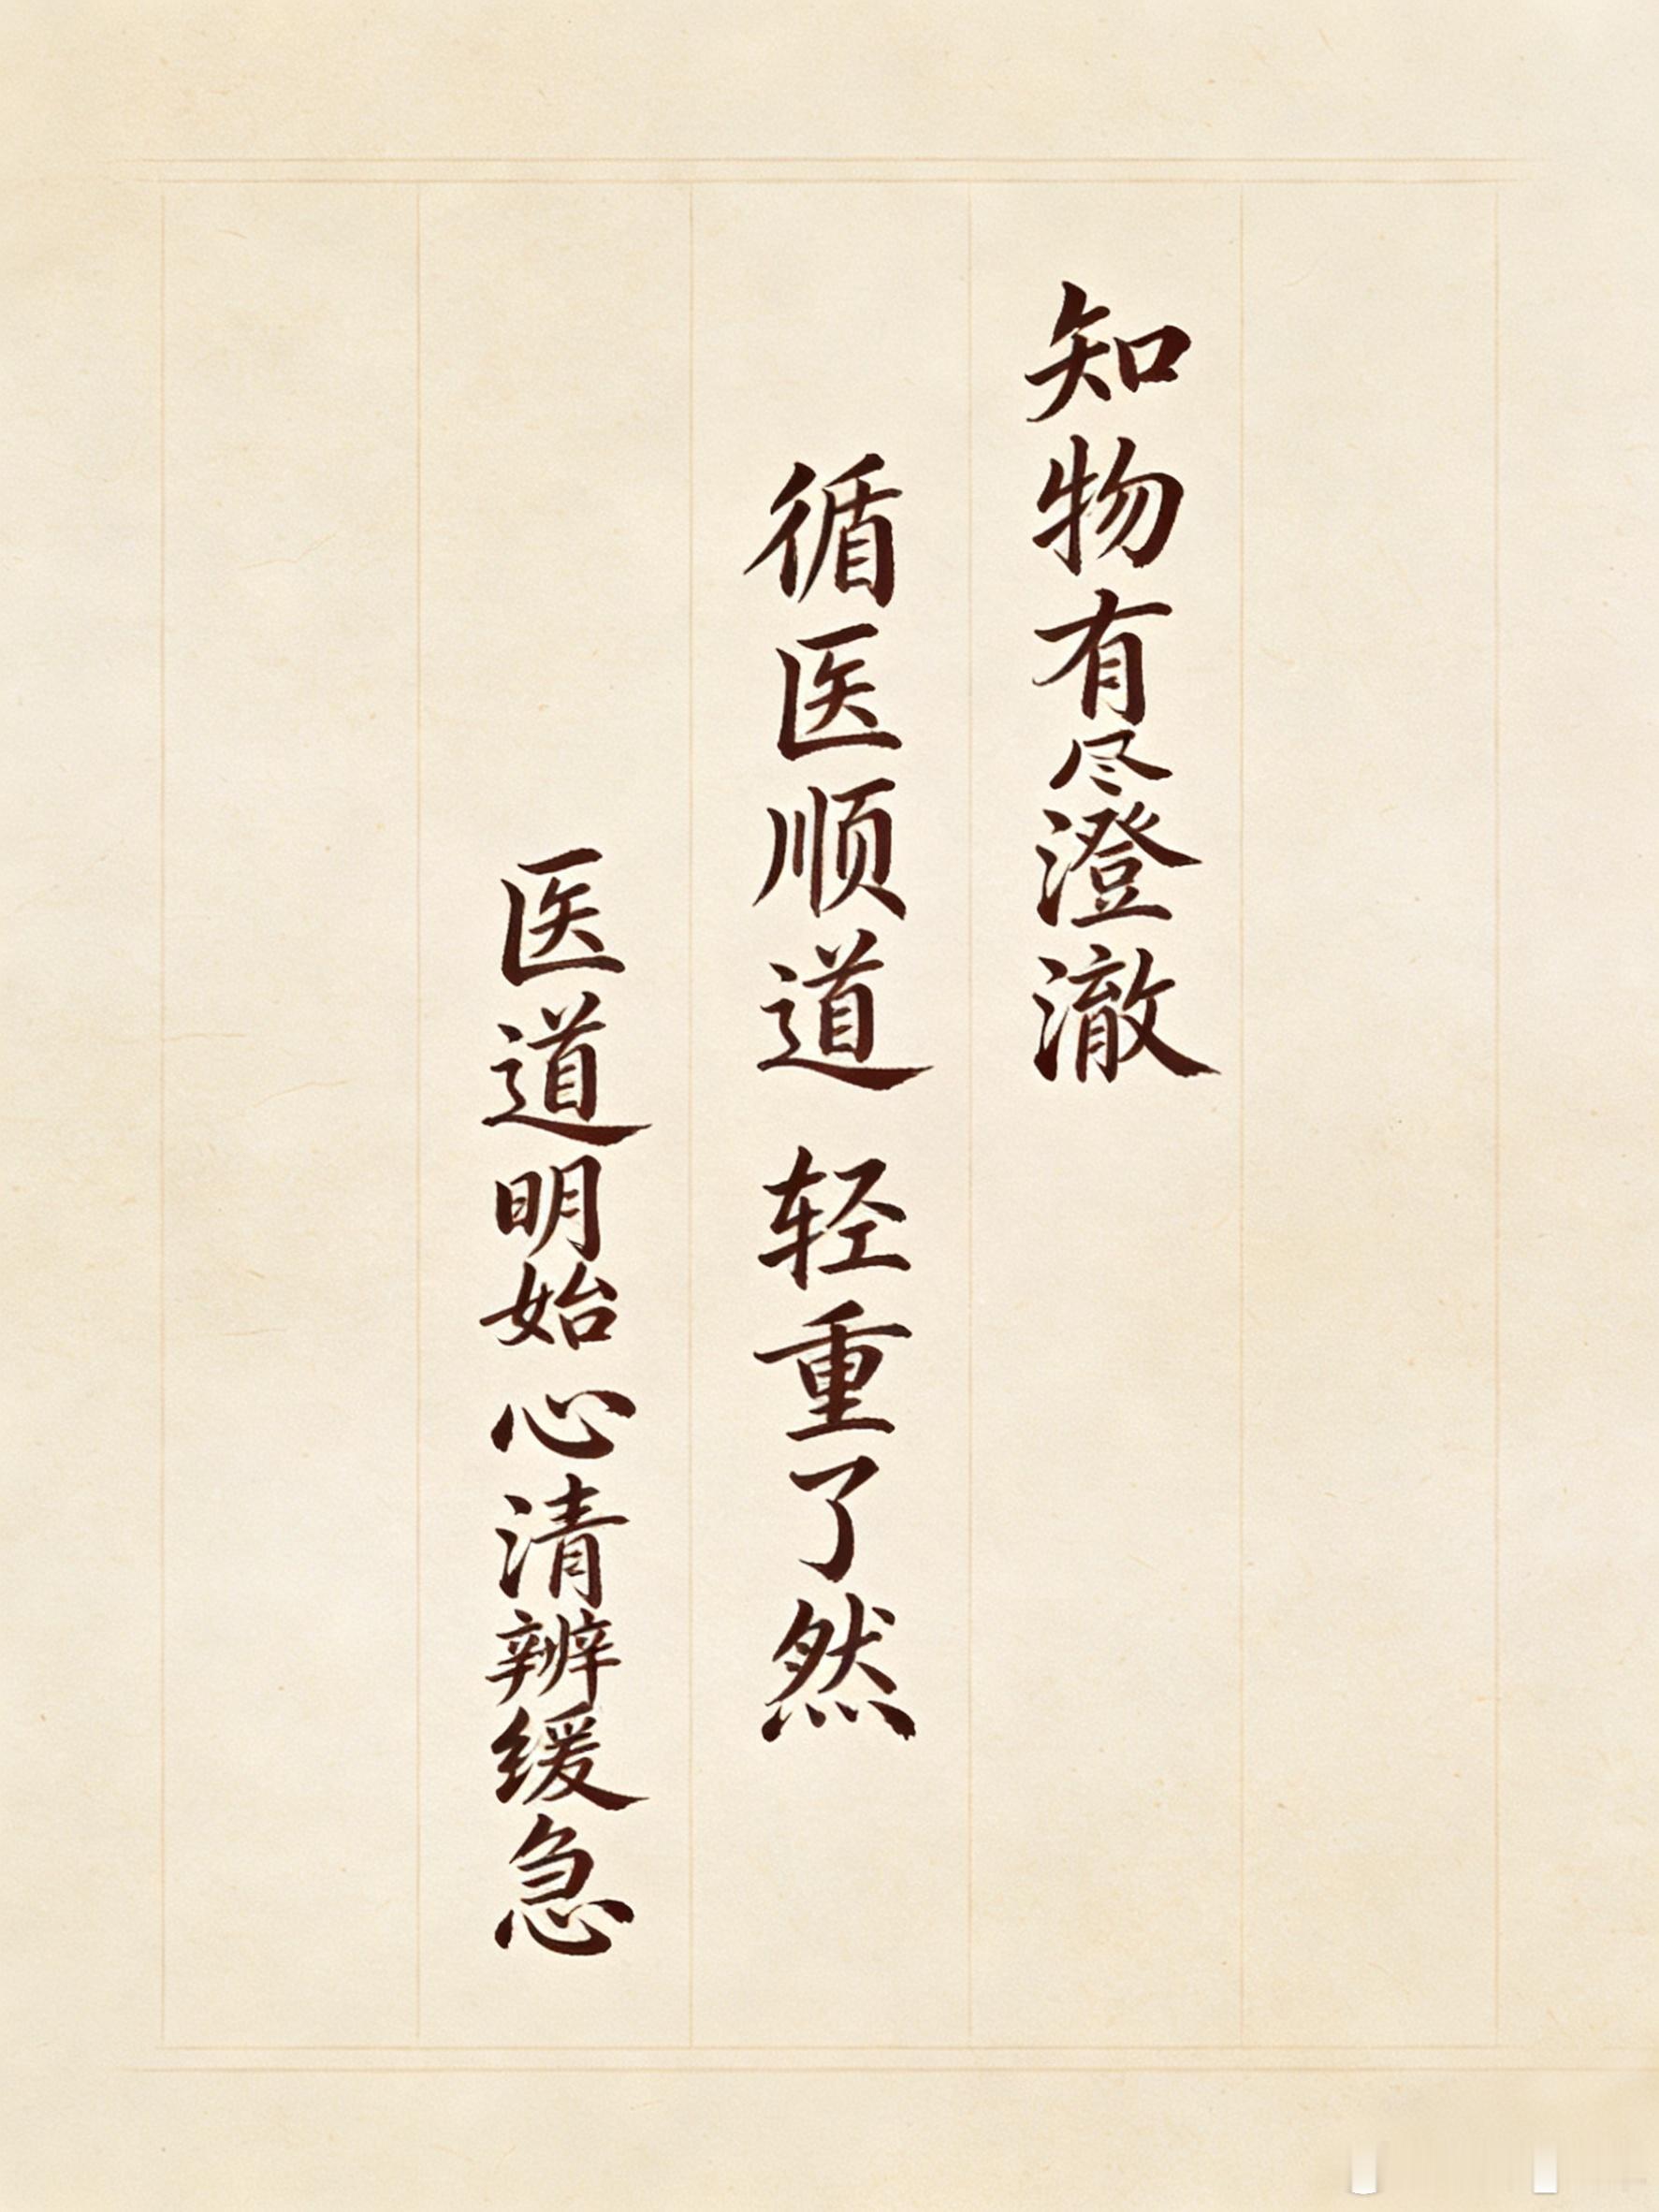 知物有尽澄澈
循医顺道 轻重了然
医道明始心清辨缓急